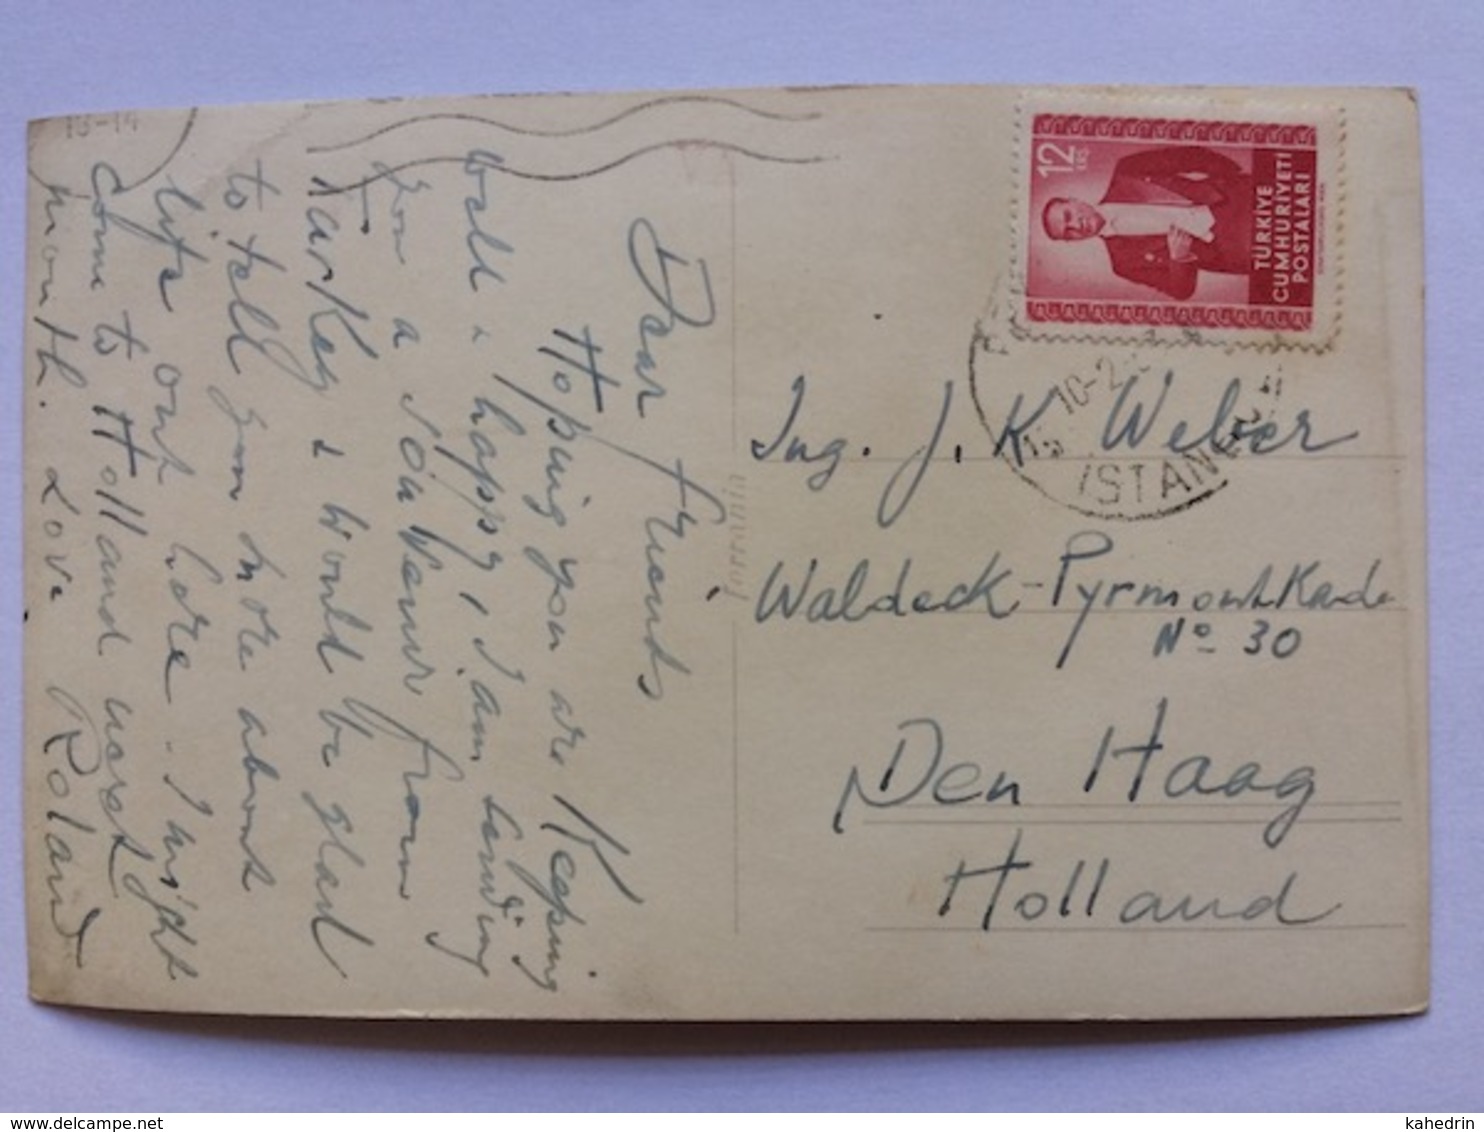 Dear friends
Hoping you are Keeping
well & happy, I am sending
you a souvenir from
Turkey & would be glad
to tell you more about
life out here. I might
come to Holland next
month. Love Roland
12
KRŞ.
TÜRKİYE
CUMHURİYETİ
POSTALARI
10-2-
İSTANBUL
13-14
Ing. J. K Weber
Waldeck-Pyrmontkade
No 30
Den Haag
Holland
Ferrania
www.delcampe.net
kahedrin